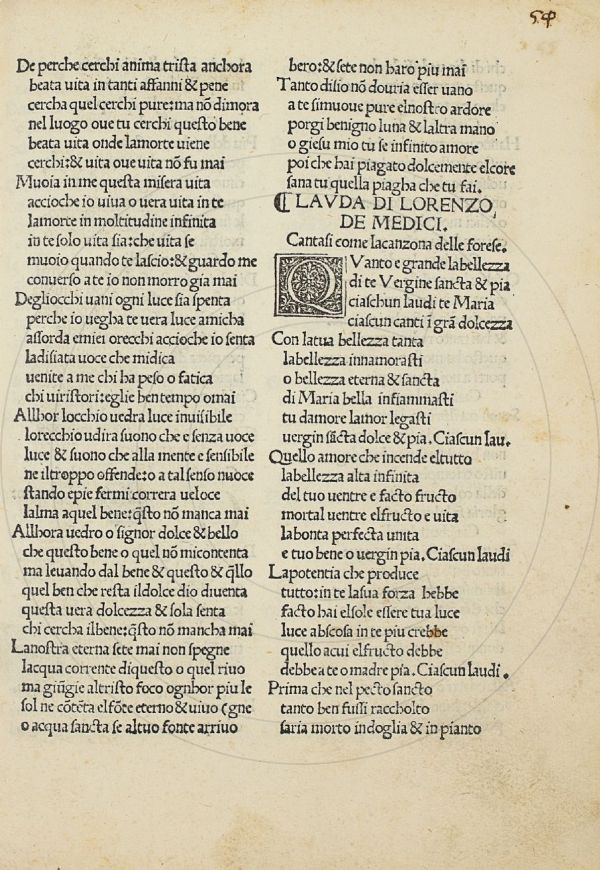 54
De perche cerchi anima trista anchora
beata uita in tanti affanni & pene
cercha quel cerchi pure: ma nō dimora
nel luogo oue tu cerchi questo bene
beata uita onde lamorte uiene
cerchi: & uita oue uita nō fu mai
Muoia in me questa misera uita
accioche io uiua o uera uita in te
lamorte in moltitudine infinita
in te solo uita sia: che uita se
muoio quando te lascio: & guardo me
conuerso a te io non morro gia mai
Degliocchi uani ogni luce sia spenta
perche io uegha te uera luce amicha
assorda emiei orecchi accioche io senta
ladisiata uoce che midica
uenite a me chi ha peso o fatica
chi uiristori: eglie ben tempo omai
Allhor locchio uedra luce inuisibile
lorecchio udira suono che e senza uoce
luce & suono che alla mente e sensibile
ne iltroppo offende: o a tal senso nuoce
stando epie fermi correra ueloce
lalma aquel bene: q̄sto nō manca mai
Allhora uedro o signor dolce & bello
che questo bene o quel nō micontenta
ma leuando dal bene & questo & q̄llo
quel ben che resta ildolce dio diuenta
questa uera dolcezza & sola senta
chi cercha ilbene: q̄sto nō mancha mai
Lanostra eterna sete mai non spegne
lacqua corrente diquesto o quel riuo
ma giūgie altristo foco ognhor piu le
sol ne cōtēta elfōte eterno & uiuo (gne
o acqua sancta se altuo fonte arriuo
bero: & sete non haro piu mai
Tanto disio nō douria esser uano
a te simuoue pure elnostro ardore
porgi benigno luna & laltra mano
o giesu mio tu se infinito amore
poi che hai piagato dolcemente elcore
sana tu quella piagha che tu fai.
⁋ LAVDA DI LORENZO
DE MEDICI.
Cantasi come lacanzona delle forese.
QVanto e grande labellezza
di te Vergine sancta & pia
ciaschun laudi te Maria
ciascun canti i grā dolcezza
Con latua bellezza tanta
labellezza innamorasti
o bellezza eterna & sancta
di Maria bella infiammasti
tu damore lamor legasti
uergin sācta dolce & pia. Ciascun lau.
Quello amore che incende eltutto
labellezza alta infinita
del tuo uentre e facto fructo
mortal uentre elfructo e uita
labonta perfecta unita
e tuo bene o uergin pia. Ciascun laudi
Lapotentia che produce
tutto: in te lasua forza hebbe
facto hai elsole essere tua luce
luce abscosa in te piu crebbe
quello acui elfructo debbe
debbe a te o madre pia. Ciascun laudi.
Prima che nel pecto sancto
tanto ben fussi raccholto
saria morto in doglia & in pianto